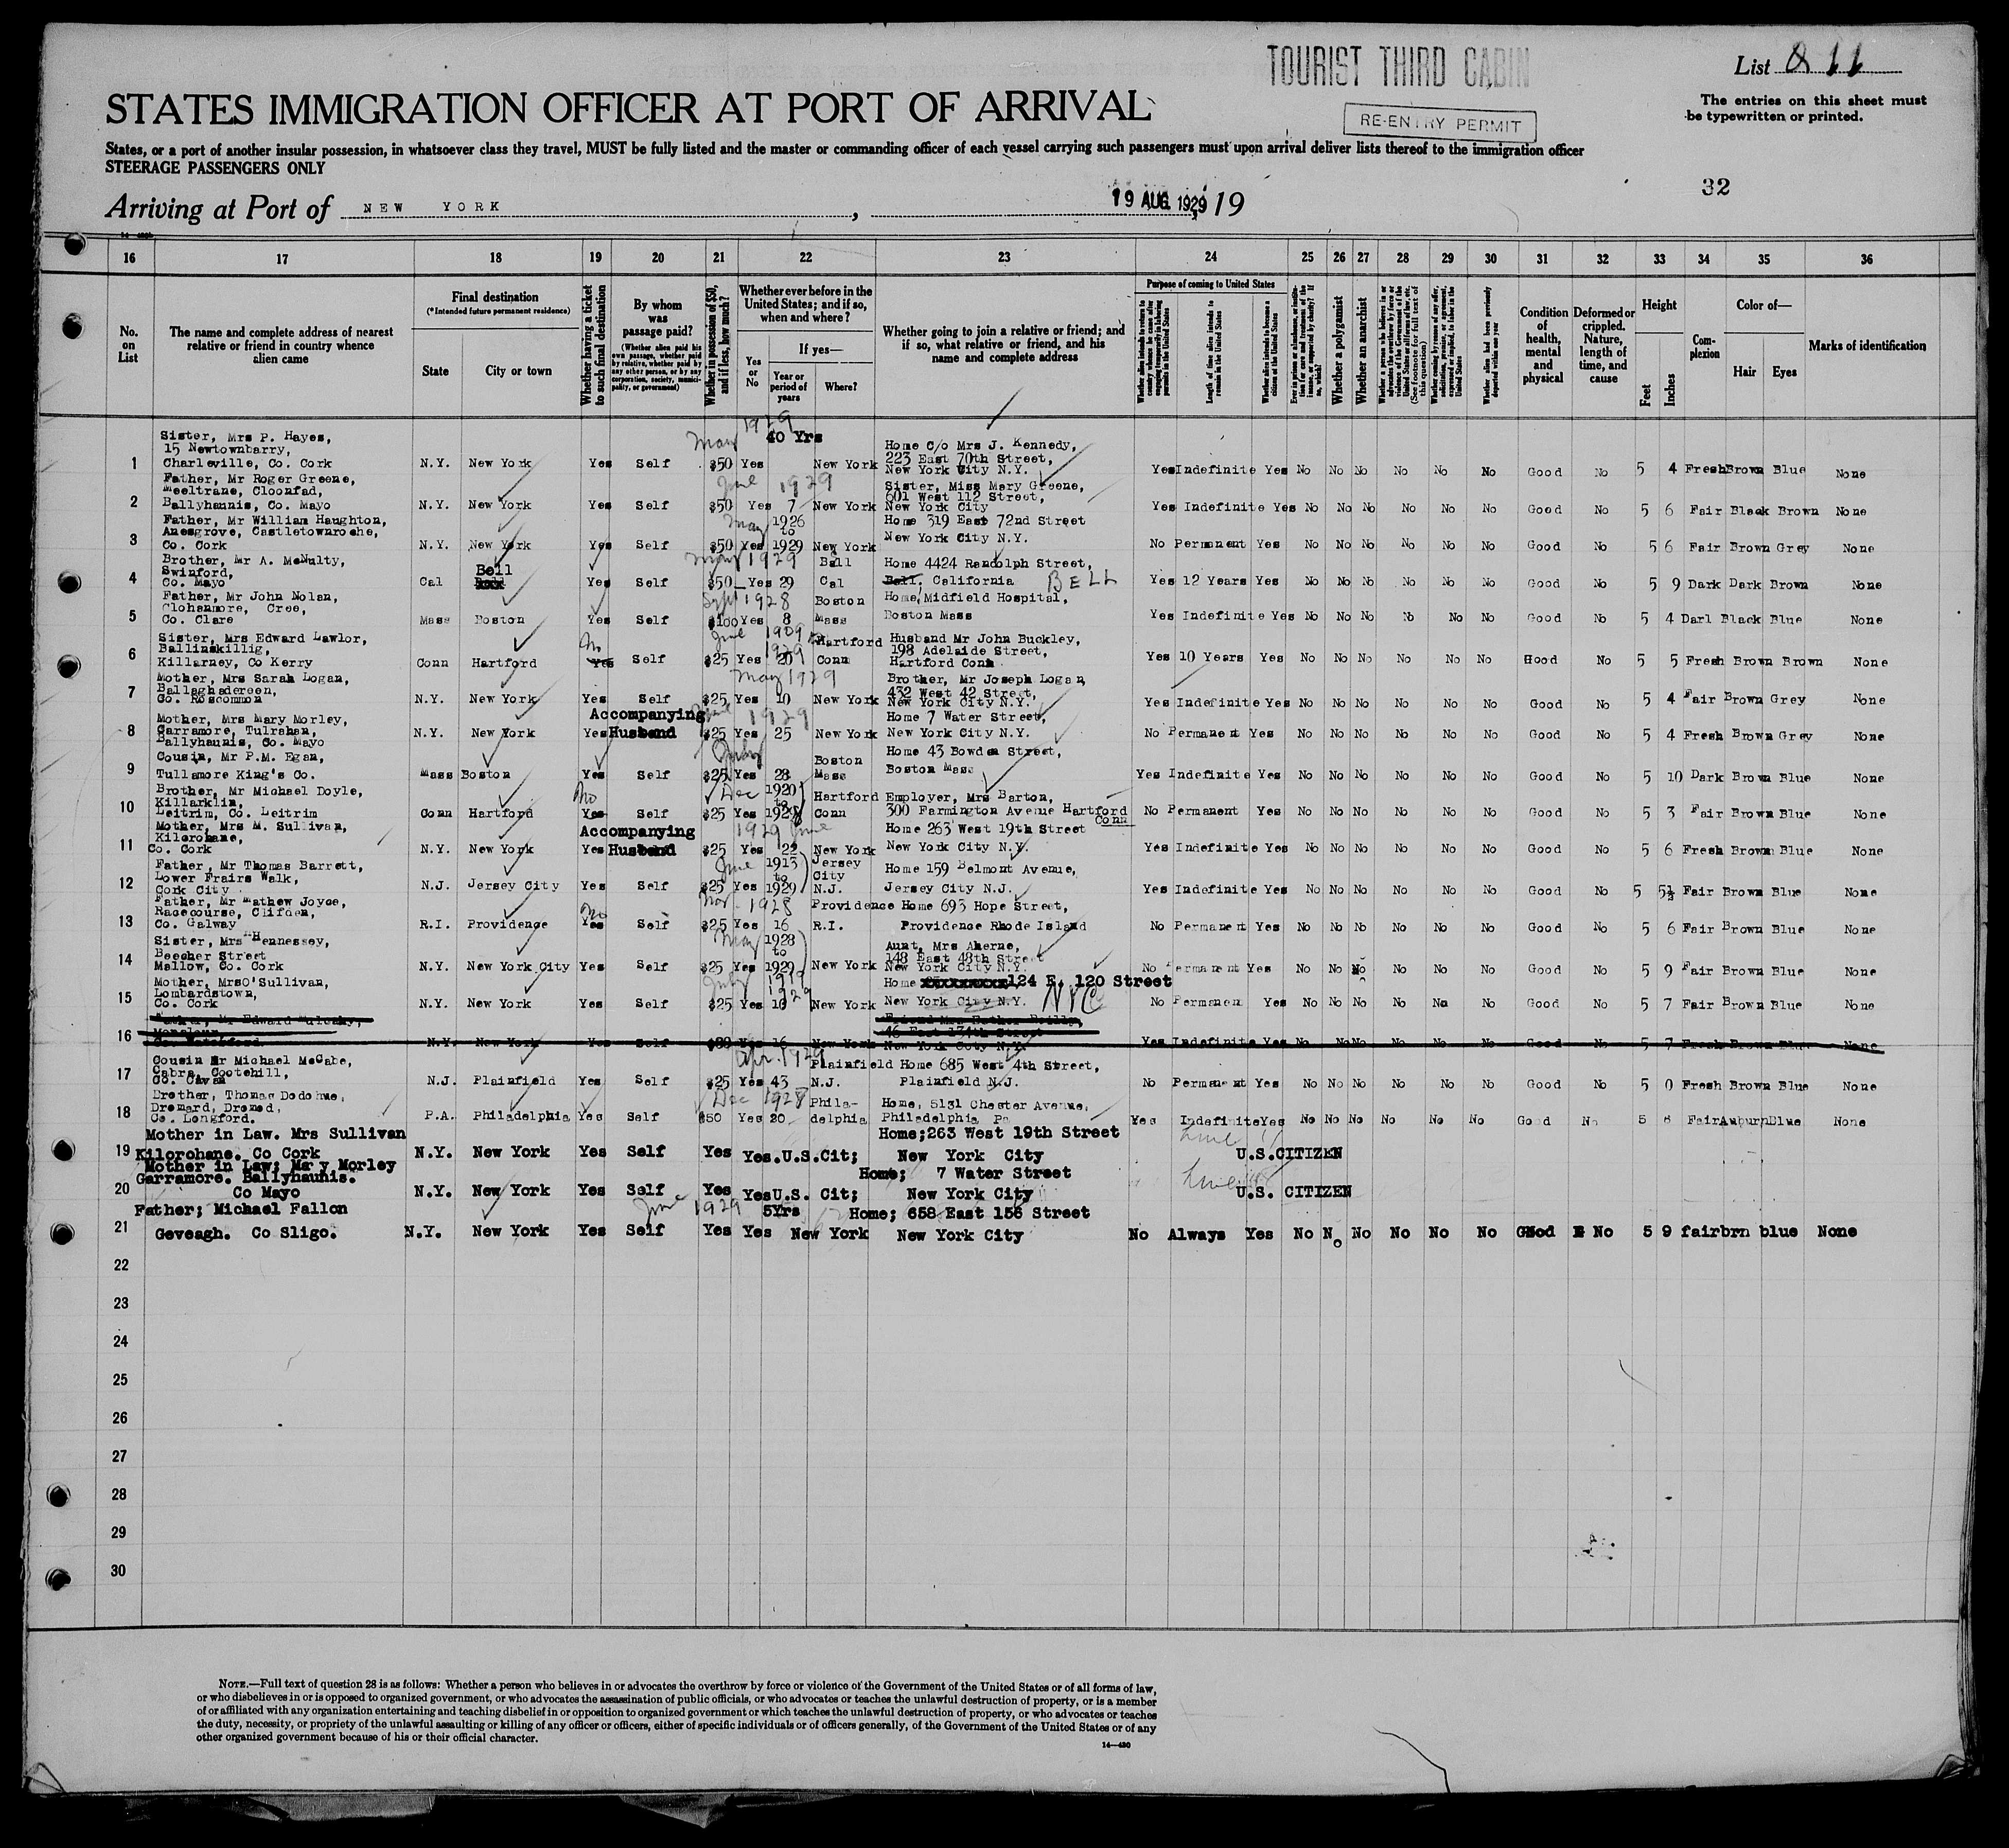 TOURIST THIRD CABIN
List 11
STATES IMMIGRATION OFFICER AT PORT OF ARRIVAL
RE-ENTRY PERMIT
The entries on this sheet must
be typewritten or printed.
States, or a port of another insular possession, in whatsoever class they travel, MUST be fully listed and the master or commanding officer of each vessel carrying such passengers must upon arrival deliver lists thereof to the immigration officer
STEERAGE PASSENGERS ONLY
32
Arriving at Port of NEW YORK , 19 AUG 1929 , 19
16 17 18 19 20 21 22 23 24 25 26 27 28 29 30 31 32 33 34 35 36
No. on List
The name and complete address of nearest relative or friend in country whence alien came
Final destination
(*Intended future permanent residence)
State City or town
Whether having a ticket to such final destination
By whom was passage paid?
(Whether alien paid his own passage, whether paid by relative, whether paid by any other person, or by any corporation, society, municipality, or government)
Whether in possession of $50, and if less, how much?
Whether ever before in the United States; and if so, when and where?
Yes or No
If yes—
Year or period of years Where?
Whether going to join a relative or friend; and if so, what relative or friend, and his name and complete address
Purpose of coming to United States
Length of time alien intends to remain in the United States
Whether alien intends to become a citizen of the United States
Whether a polygamist
Whether an anarchist
Whether alien had been previously deported within one year
Condition of health, mental and physical
Deformed or crippled. Nature, length of time, and cause
Height
Feet Inches
Complexion
Color of—
Hair Eyes
Marks of identification
May 1929
40 Yrs
Sister, Mrs P. Hayes,
15 Newtownbarry,
Home C/o Mrs J. Kennedy,
223 East 70th Street,
1 Charleville, Co. Cork N.Y. New York Yes Self $50 Yes New York New York City N.Y. Yes Indefinite Yes No No No No No No Good No 5 4 Fresh Brown Blue None
June 1929
Father, Mr Roger Greene,
Meeltrane, Cloonfad,
Sister, Miss Mary Greene,
601 West 112 Street,
2 Ballyhaunis, Co. Mayo N.Y. New York Yes Self $50 Yes 7 New York New York City Yes Indefinite Yes No No No No No No Good No 5 6 Fair Black Brown None
Father, Mr William Haughton,
Anesgrove, Castletownroche,
May 1926
to
Home 319 East 72nd Street
3 Co. Cork N.Y. New York Yes Self $50 Yes 1929 New York New York City N.Y. No Permanent Yes No No No No No No Good No 5 6 Fair Brown Grey None
May 1929
Brother, Mr A. McNulty,
Swinford,
Bell
Bell
Home 4424 Randolph Street,
4 Co. Mayo Cal Yes Self $50 Yes 29 Cal Bell, California BELL Yes 12 Years Yes No No No No No No Good No 5 9 Dark Dark Brown None
Sept 1928
Father, Mr John Nolan,
Clohanmore, Cree,
Boston
Home, Midfield Hospital,
5 Co. Clare Mass Boston Yes Self $100 Yes 8 Mass Boston Mass Yes Indefinite Yes No No No No No No Good No 5 4 Darl Black Blue None
June 1909 to
1929
Sister, Mrs Edward Lawlor,
Ballinskillig,
No
Hartford
Husband Mr John Buckley,
198 Adelaide Street,
6 Killarney, Co Kerry Conn Hartford Yes Self $25 Yes 20 Conn Hartford Conn Yes 10 Years Yes No No No No No No Hood No 5 5 Fresh Brown Brown None
May 1929
Mother, Mrs Sarah Logan,
Ballaghadereen,
Brother, Mr Joseph Logan,
432 West 42 Street,
7 Co. Roscommon N.Y. New York Yes Self $25 Yes 10 New York New York City N.Y. Yes Indefinite Yes No No No No No No Good No 5 4 Fair Brown Grey None
Accompanying
June 1929
Mother, Mrs Mary Morley,
Garramore, Tulrahan,
Home 7 Water Street,
8 Ballyhaunis, Co. Mayo N.Y. New York Yes Husband $25 Yes 25 New York New York City N.Y. No Permanent Yes No No No No No No Good No 5 4 Fresh Brown Grey None
Cousin, Mr P.M. Egan,
Boston
Home 43 Bowden Street,
9 Tullamore King's Co. Mass Boston Yes Self $25 Yes 28 Mass Boston Mass Yes Indefinite Yes No No No No No No Good No 5 10 Dark Brown Blue None
Dec 1920
to
Brother, Mr Michael Doyle,
Killarklin,
No
Hartford
Employer, Mrs Barton,
300 Farmington Avenue Hartford
Conn
10 Leitrim, Co. Leitrim Conn Hartford Yes Self $25 Yes 1928 Conn No Permanent Yes No No No No No No Good No 5 3 Fair Brown Blue None
Accompanying
1929 June
Mother, Mrs M. Sullivan,
Kilcrohane,
Home 263 West 19th Street
11 Co. Cork N.Y. New York Yes Husband $25 Yes 22 New York New York City N.Y. Yes Indefinite Yes No No No No No No Good No 5 6 Fresh Brown Blue None
June 1913
to
Father, Mr Thomas Barrett,
Lower Frairs Walk,
Jersey
City
Home 159 Belmont Avenue,
12 Cork City N.J. Jersey City Yes Self $25 Yes 1929 N.J. Jersey City N.J. Yes Indefinite Yes No No No No No No Good No 5 5½ Fair Brown Blue None
Nov. 1928
Father, Mr Mathew Joyce,
Racecourse, Clifden,
No
Providence
Home 693 Hope Street,
13 Co. Galway R.I. Providence Yes Self $25 Yes 16 R.I. Providence Rhode Island No Permanent Yes No No No No No No Good No 5 6 Fair Brown Blue None
May 1928
to
Sister, Mrs Hennessey,
Beecher Street
Aunt, Mrs Aherne,
148 East 48th Street
14 Mallow, Co. Cork N.Y. New York City Yes Self $25 Yes 1929 New York New York City N.Y. No Permanent Yes No No No No No No Good No 5 9 Fair Brown Blue None
July 1919
1929
Mother, Mrs O'Sullivan,
Lombardstown,
Home 124 E. 120 Street
15 Co. Cork N.Y. New York Yes Self $25 Yes 10 New York New York City N.Y. NYC No Permanent Yes No No No No No No Good No 5 7 Fair Brown Blue None
46 East 134th Street
16 N.Y. New York Yes Self Yes 16 New York New York City N.Y. Yes Indefinite Yes No No No No No No Good No 5 7 Fresh Brown Blue None
Apr. 1929
Cousin Mr Michael McCabe,
Cabra, Cootehill,
Plainfield
Home 685 West 4th Street,
17 Co. Cavan N.J. Plainfield Yes Self $25 Yes 43 N.J. Plainfield N.J. No Permanent Yes No No No No No No Good No 5 0 Fresh Brown Blue None
Dec 1928
Brother, Thomas Dodohue,
Dromard, Dromod,
Phila-
Home, 5131 Chester Avenue,
18 Co. Longford. P.A. Philadelphia Yes Self $50 Yes 20 delphia Philadelphia Pa Yes Indefinite Yes No No No No No No Good No 5 8 Fair Auburn Blue None
Mother in Law. Mrs Sullivan
Home; 263 West 19th Street
19 Kilcrohane. Co Cork N.Y. New York Yes Self Yes Yes.U.S.Cit; New York City U.S.CITIZEN
Mother in Law; Mary Morley
Garramore. Ballyhaunis.
Home; 7 Water Street
20 Co Mayo N.Y. New York Yes Self Yes Yes U.S. Cit; New York City U.S. CITIZEN
June 1929
Father; Michael Fallon
5Yrs
Home; 658 East 156 Street
21 Geveagh. Co Sligo. N.Y. New York Yes Self Yes Yes New York New York City No Always Yes No No No No No No Good No 5 9 fair brn blue None
22
23
24
25
26
27
28
29
30
NOTE.—Full text of question 28 is as follows: Whether a person who believes in or advocates the overthrow by force or violence of the Government of the United States or of all forms of law,
or who disbelieves in or is opposed to organized government, or who advocates the assassination of public officials, or who advocates or teaches the unlawful destruction of property, or is a member
of or affiliated with any organization entertaining and teaching disbelief in or opposition to organized government or which teaches the unlawful destruction of property, or who advocates or teaches
the duty, necessity, or propriety of the unlawful assaulting or killing of any officer or officers, either of specific individuals or of officers generally, of the Government of the United States or of any
other organized government because of his or their official character.
14—430